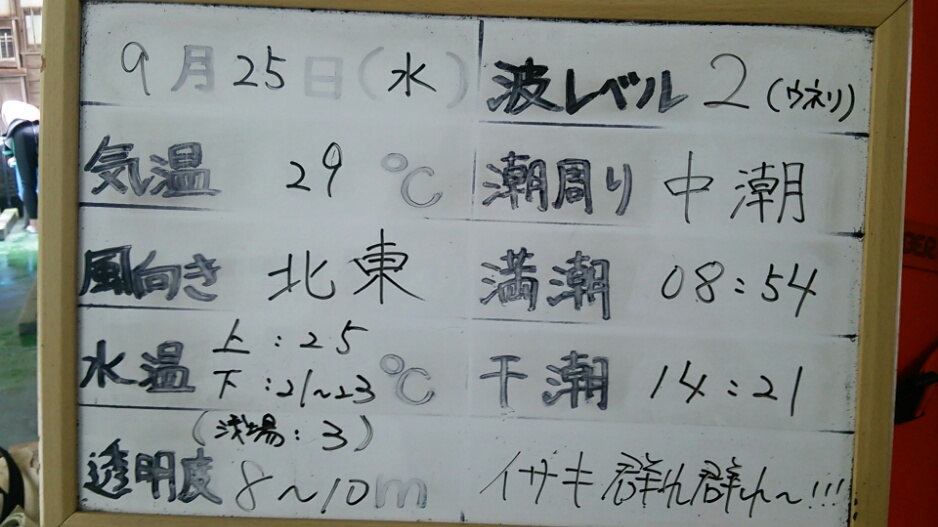 9月25日(水)
波レベル 2(ウネリ)
気温 29℃
潮周り 中潮
風向き 北東
満潮 08:54
水温 上:25 下:21~23℃
干潮 14:21
(浅場:3)
透明度 8~10m
イサキ群れ群れ~!!!